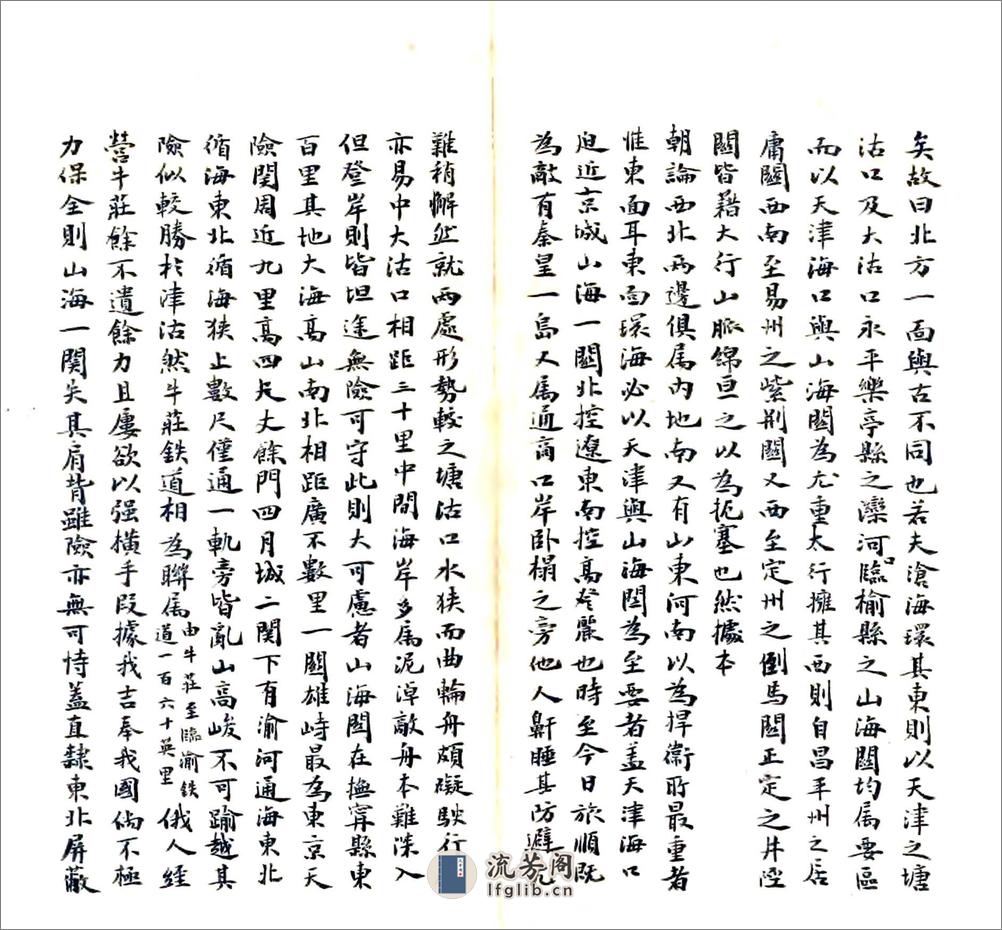 矣故曰北方一面與古不同也若夫滄海環其東則以天津之塘
沽口及大沽口永平樂亭縣之灤河口臨榆縣之山海關均屬要區
而以天津海口與山海關為尤重太行擁其西則自昌平州之居
庸關西南至易州之紫荆關又西至定州之倒馬關正定之井陘
關皆藉大行山脈綿亘之以為扼塞也然據本
朝論西北兩邊俱属内地南又有山東河南以為捍衛所最重者
惟東面耳東面環海必以天津與山海関為至要者盖天津海口
迫近京城山海一關北控遼東南控高麗也時至今日旅順既
為敵有秦皇一島又属通商口岸卧榻之旁他人鼾睡其防避
難稍懈然就两處形勢較之塘沽口水狹而曲輪舟頗礙駛行
亦易中大沽口相距三十里中間海岸多属泥淖敵舟本難深入
但登岸則皆坦途無險可守此則大可慮者山海関在撫寧縣東
百里其地大海高山南北相距廣不數里一關雄峙最為東京天
險関周近九里高四尺丈餘門四月城二関下有渝河通海東北
循海東北循海狹止數尺僅通一軌旁皆亂山高峻不可踰越其
險似較勝於津沽然牛莊鉄道相為聯属由牛莊至臨渝鉄道一百六十英里俄人經
營牛莊餘不遺餘力且屢欲以强横手段據我吉奉我國倘不極
力保全則山海一関失其肩背雖險亦無可恃蓋直隸東北屏蔽
流芳阁
lfglib.cn